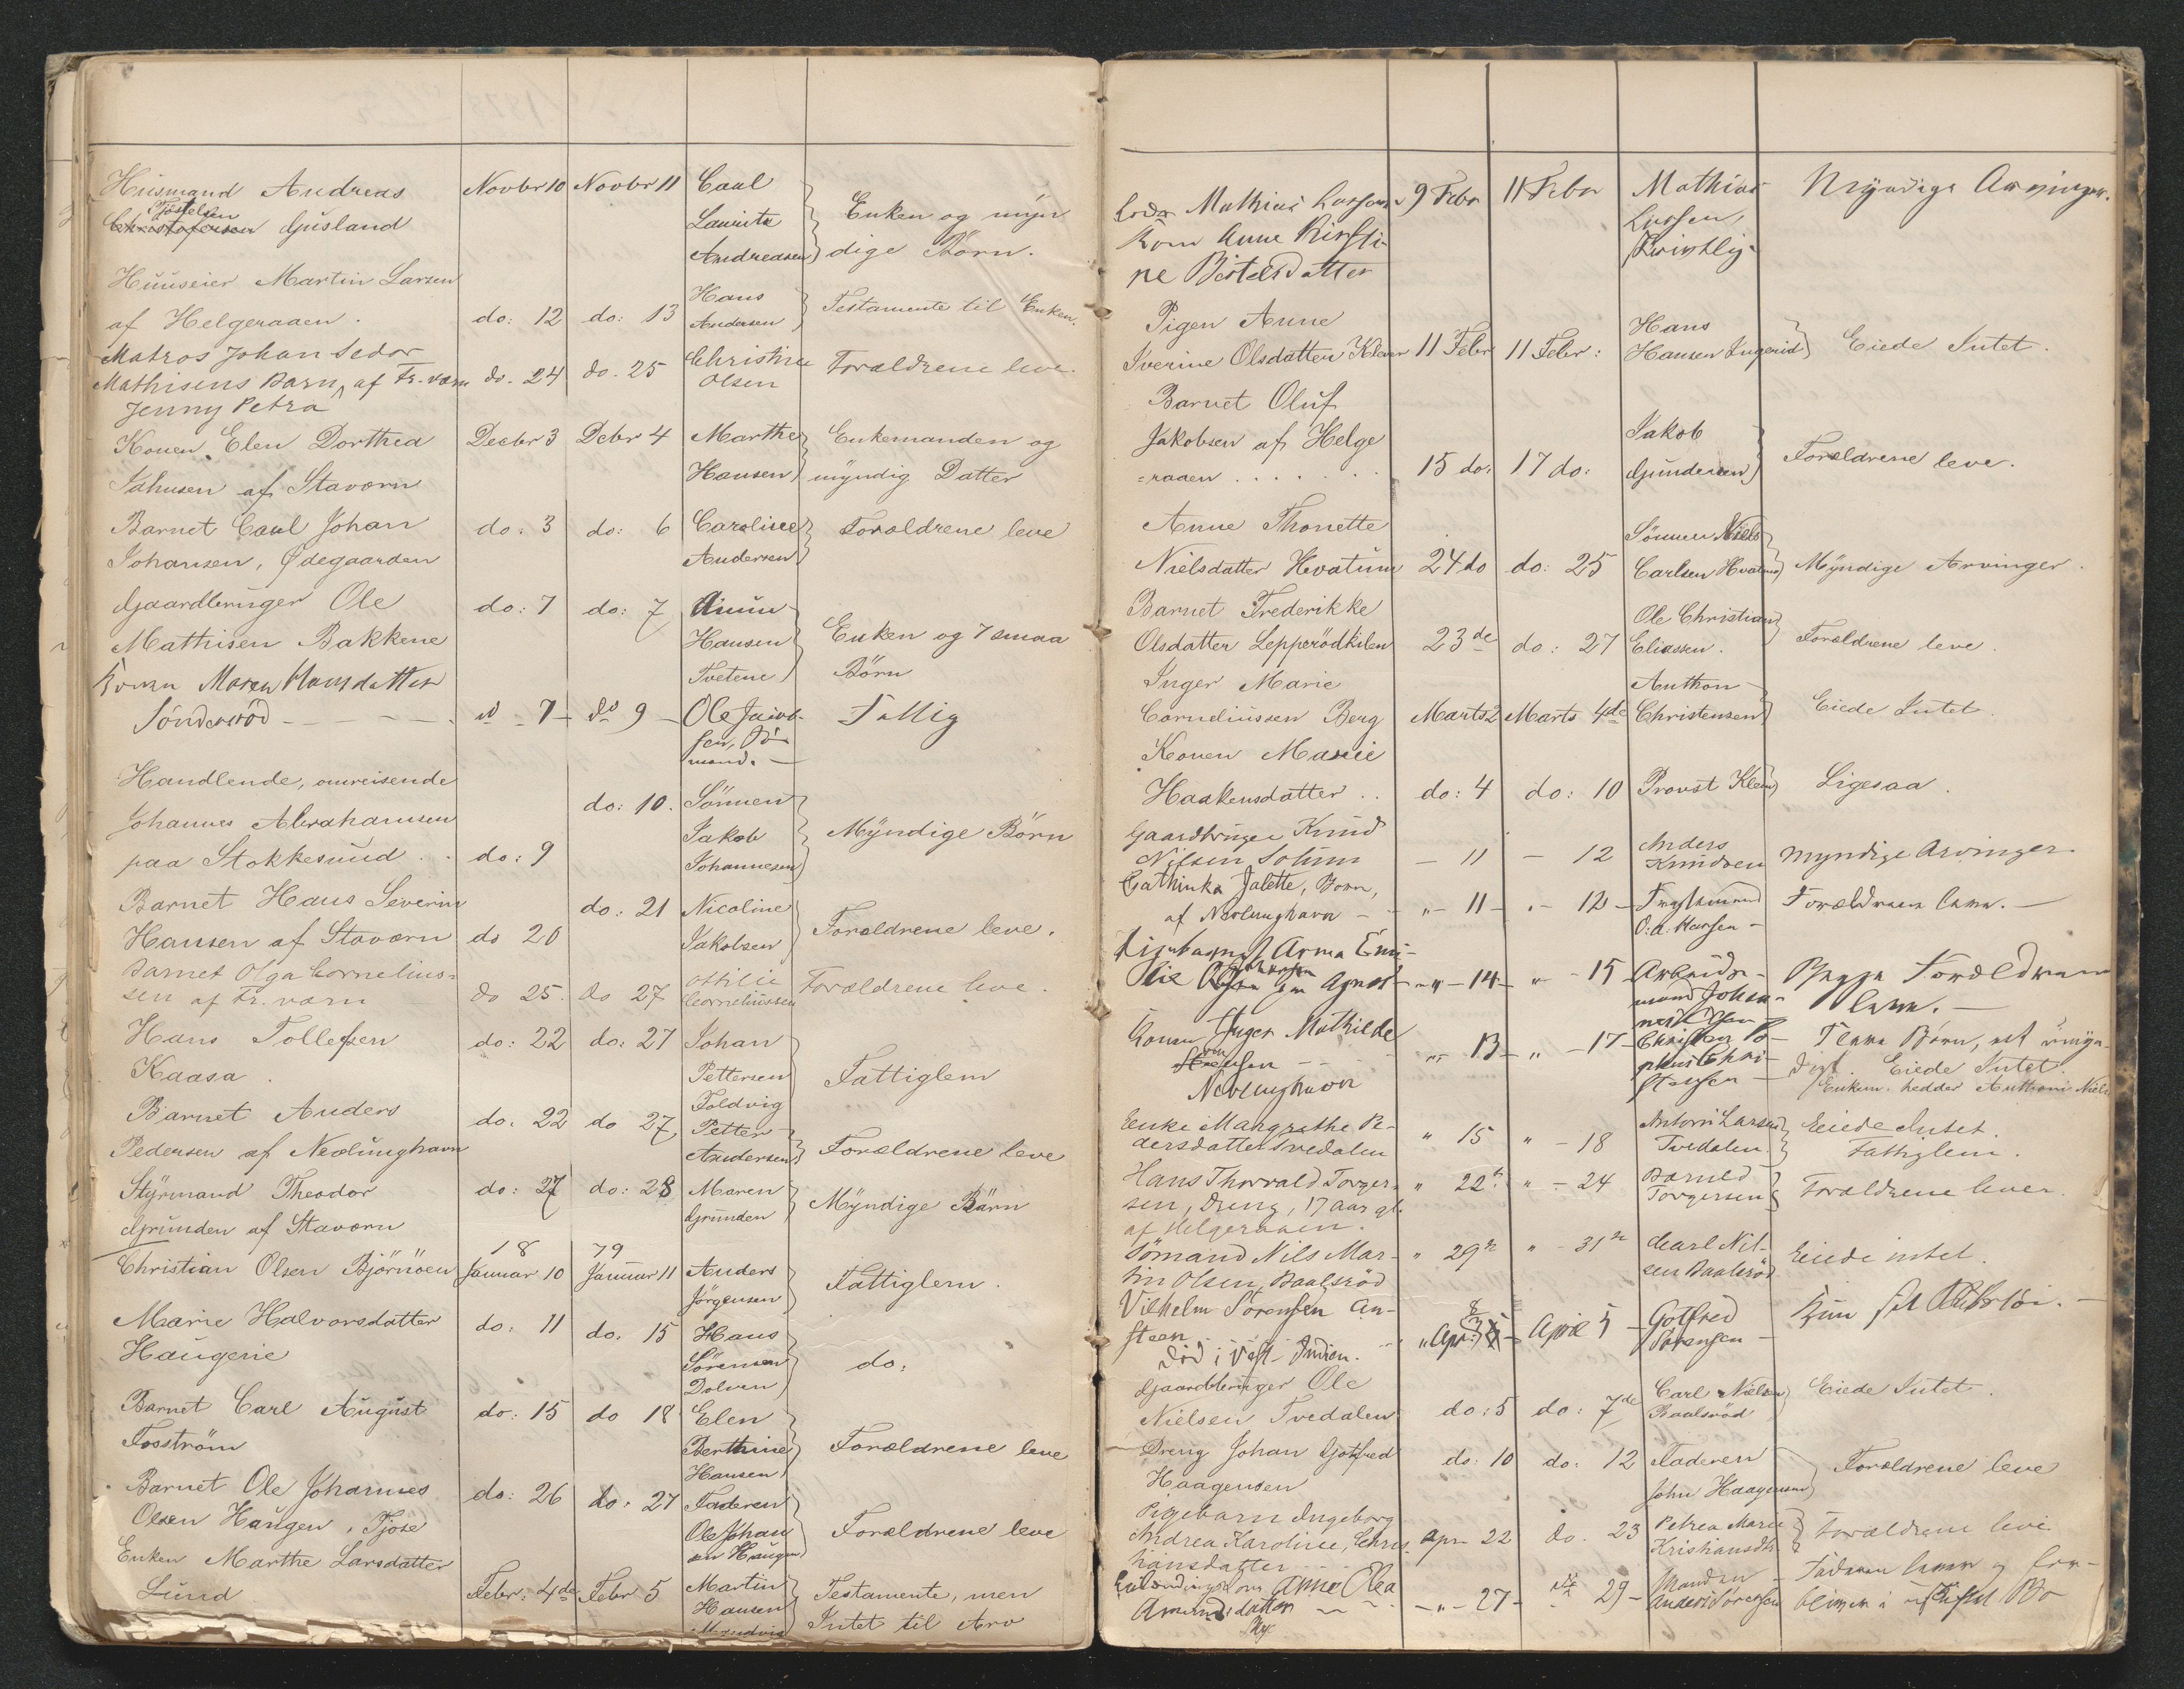 Husmand Andreas Novbr 10 Novbr 11 Carl
Tostelsen
Christofersen Gusland Lauritz Enken og myn
Andreasen dige Börn.
Huuseier Martin Larsen
af Helgeraaen. do: 12 do: 13 Hans Andersen Testamente til Enken.
Matros Johan Sedor
Mathisens Barn, af Fr.værn do. 24 do. 25 Christine Olsen Forældrene leve.
Jenny Petra
Konen Elen Dorthea Decbr 3 Dcbr 4 Marthe Enkemanden og
Jahnsen af Staværn Hansen myndig Datter
Barnet Carl Johan do: 3 do: 6 Caroline Forældrene leve
Johansen, Ødegaarden Andersen
Gaardbruger Ole do: 7 do: 7
Mathisen Bakkene Hansen Enken og 7 smaa
Tvetene Börn
Konen Maren Hansdatter
Sönderröd - do - 7 - do 9 - Ole Jacob-
sen, Sö-
mand.
Handlende, omreisende
Johannes Abrahamsen do: 10. Sönnen
paa Stokkesund . . do: 9 Jakob Myndige Börn
Johannesen
Barnet Hans Severin do: 21 Nicoline
Hansen af Staværn do 20 Jakobsen Forældrene leve.
Barnet Olga Cornelius=
sen af Fr. værn do 25. do 27 Ottilie Corneliussen Forældrene leve.
Hans Tollefsen do: 22 do: 27 Johan
Kaasa. Pettersen Fattiglem
Foldvig
Barnet Anders do. 22 do 27 Petter
Pedersen af Nevlunghavn Andersen Forældrene leve
Styrmand Theodor do: 27 do: 28 Maren
Grunden af Staværn Grunden Myndige Börn
18 79
Christian Olsen Björnöen Januar 10 Januar 11 Anders
Jörgensen Fattiglem.
Marie Halvorsdatter do: 11 do. 15 Hans
Haugene Sörensen do:
Dolven
Barnet Carl August do: 15 do 18 Elen
Fosström Berthine Forældrene leve
Hansen
Barnet Ole Johannes do: 26 do: 27 Faderen
Olsen Haugen, Tjose Ole Johan Forældrene leve
sen Haugen
Enken Marthe Larsdatter
Lund Febr: 4de Febr 5 Martin Testamente, men
Hansen Intet til Arv
Mathias Larsen 9 Febr 11 Febr Mathias Myndige Arvinger.
Kone Anne Kirsti- Larsen,
ne Bertelsdatter
Pigen Anne Hans
Iverine Olsdatter Klever 11 Febr 11 Febr: Hansen Eiede Intet.
Barnet Oluf
Jakobsen af Helge Jakob
=raaen . . . . . . 15 do: 17 do: Gundersen Forældrene leve.
Anne Thonette Sönnen Niels
Nielsdatter Hvatum 24 do do: 25 Carlsen Hvatum Myndige Arvinger.
Barnet Frederikke Ole Christian
Olsdatter Lepperödkilen 23de do: 27 Eliassen. Forældrene leve.
Inger Marie Anthon
Corneliussen Berg Marts 2 Marts 4de Christensen Eiede Intet.
Konen Marie
Haakensdatter . . do: 4 do: 10 Provst Klem Ligesaa.
Gaardbruger Knud
Nilsen Solum - 11 - 12 Anders Knudsen Myndige Arvinger.
Cathinka Jalette, Barn,
af Nevlunghavn - " - 11 - " - 12 - Forældrene leve. -
O. A. Hansen -
Pigebarnet Anna Emi-
lie - " - 14 - " - 15 Arbeids- Begge Forældrene
mand Johan- leve. -
Konen Inger Mathilde " - 13 - " - 17 - Christen
Nevlunghavn Eiede Intet.
Enkem. hedder Anthoni Niels
Enke Margrethe Pe-
dersdatter Tvedalen " 15 " - 18 Antoni Larsen Eiede Intet.
Tvedalen. Fattiglem.
Hans Thorvald Torger- " 22 " - 24
sen, Dreng, 17 Aar gl. Torgersen Forældrene lever.
af Helgeraaen.
Sömand Nils Mar- " 29 " - 31 Carl Nil- Eiede intet.
tin Olsen, Baalsröd sen Baalsröd
Vilhelm Sörensen An-
steen - " Apr. April 5 - Gotfred Kun
Död i Vest-Indien. Sörensen -
Gaardbruger Ole Carl Nielsen Eiede Intet.
Nielsen Tvedalen do: 5 do: 7de Baalsröd
Dreng Johan Gotfred do: 10 do: 12 Faderen
Haagensen John Haagensen Forældrene leve
Pigebarn Ingeborg
Andrea Karoline, Chris- Apr 22 do. 23 Petrea Marie Forældrene leve.
tiansdatter Kristiansdtr
Anne Olea Manden
Amundsdatter - " - 27 - do 29 - Anders Sörensen